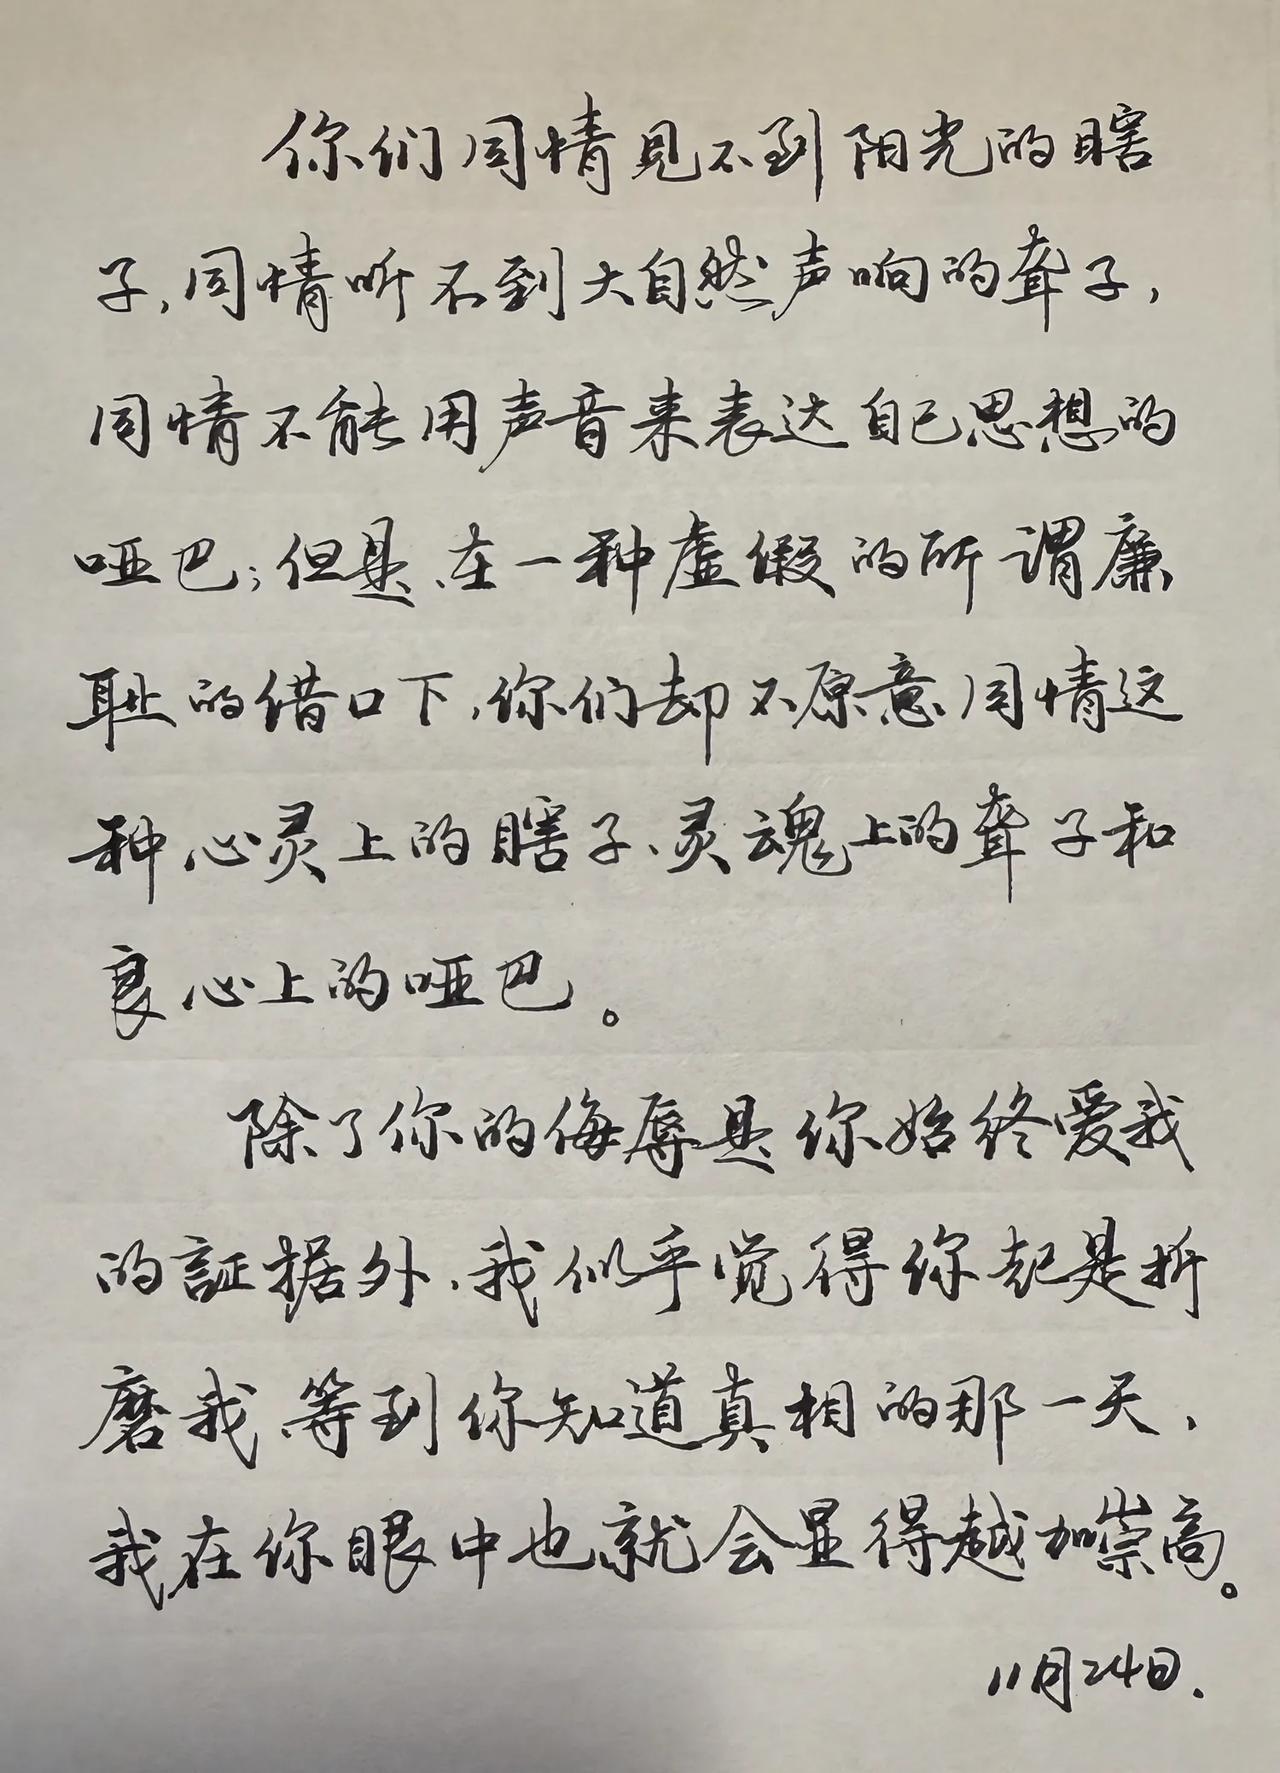 你们同情见不到阳光的瞎
子,同情听不到大自然声响的聋子,
同情不能用声音来表达自己思想的
哑巴;但是、在一种虚假的所谓廉
耻的借口下,你们却不原意同情这
种心灵上的瞎子、灵魂上的聋子和
良心上的哑巴。
除了你的侮辱是你始终爱我
的証据外、我似乎觉得你起是折
磨我、等到你知道真相的那一天、
我在你眼中也就会显得越加崇高。
11月24日.